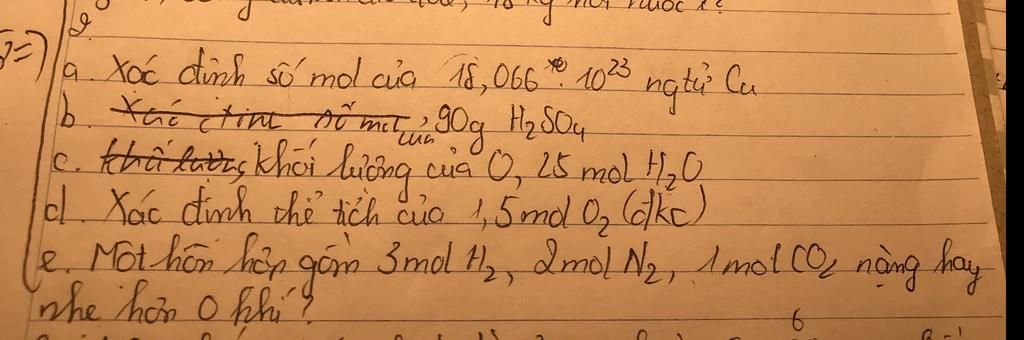 a. Xác định số mol của 18,066 . 10²³ ngtử Cu
b. Xác định số mol của 90g H₂SO₄
c. khối lượng khối lượng của 0,25 mol H₂O
d. Xác định thể tích của 1,5mol O₂ (đkc)
e. Một hỗn hợp gồm 3mol H₂, 2mol N₂, 1mol CO₂ nặng hay
nhẹ hơn O khí?
6